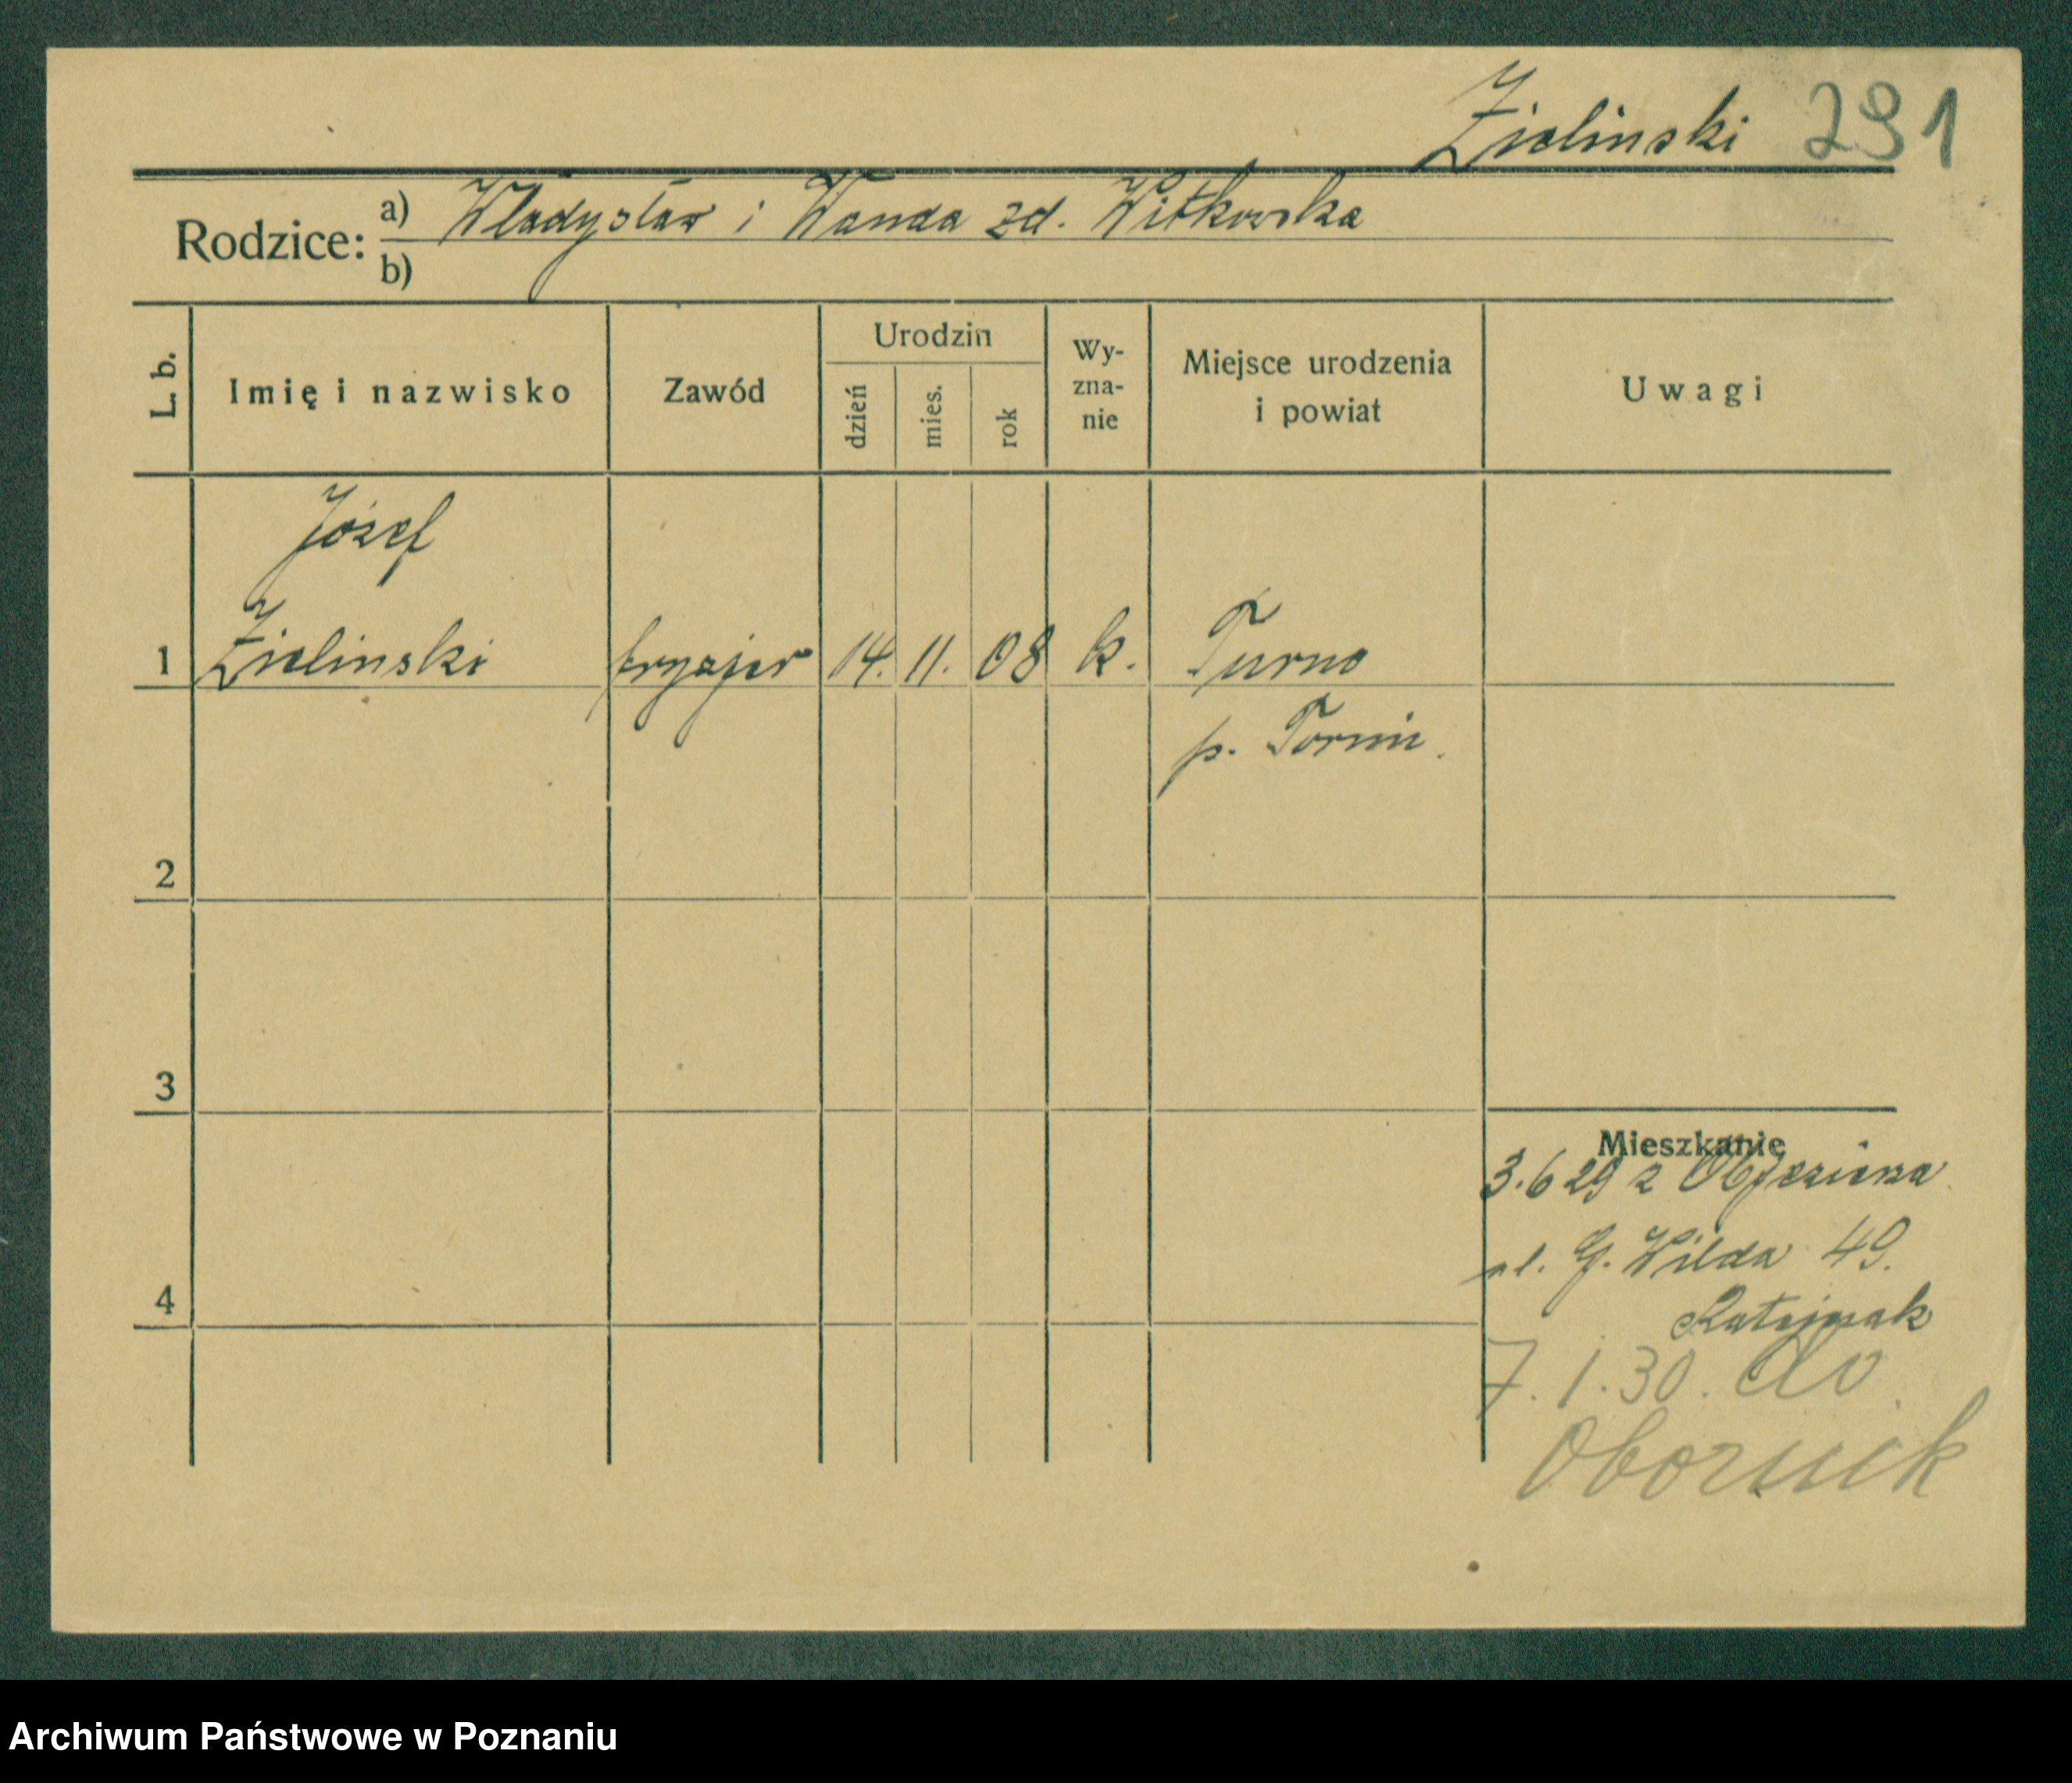 Zielinski 291
Rodzice: a) Władysław i Wanda zd. Witkowska
b)
L. b.
Imię i nazwisko
Zawód
Urodzin
dzień
mies.
rok
Wy-
zna-
nie
Miejsce urodzenia
i powiat
Uwagi
Józef
1 Zielinski fryzjer 14. 11. 08 k. Turno
p. Toruń.
2
3
Mieszkanie
3.6 29 z Objezierza
ul. G. Wilda 49.
4
Ratajczak
7. 1. 30. do
Obornik
Archiwum Państwowe w Poznaniu